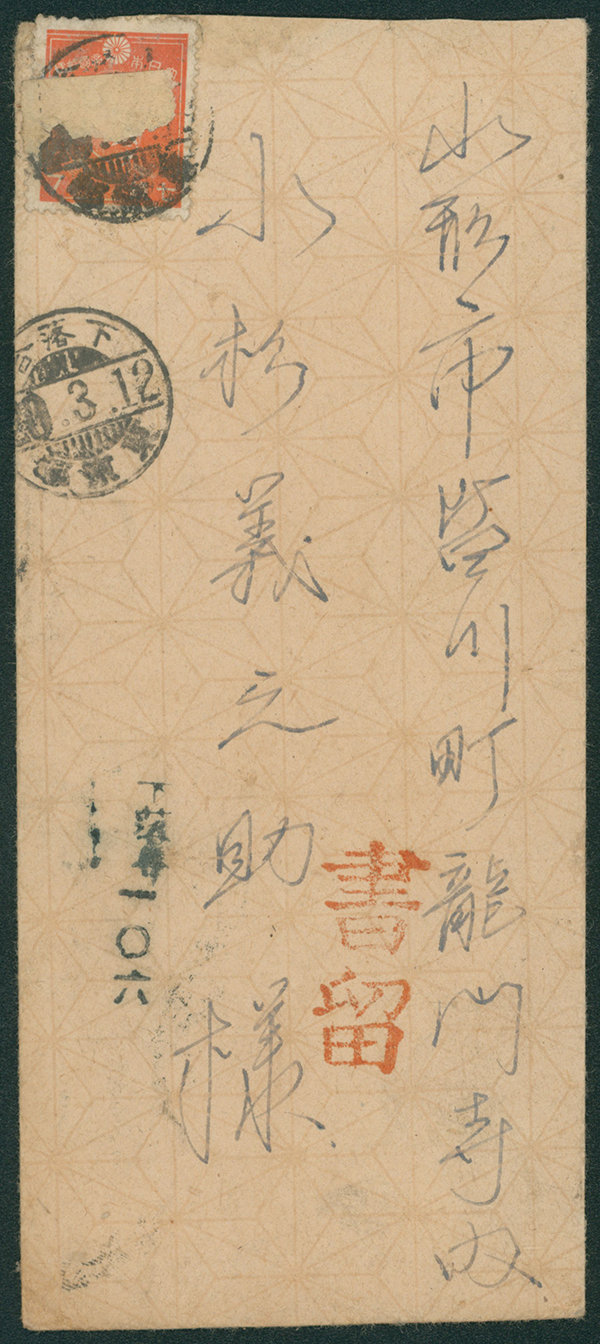 山形市皆川町龍門寺内
小松義之助様
書留
下落合
3.12
東京
下落合
一〇六